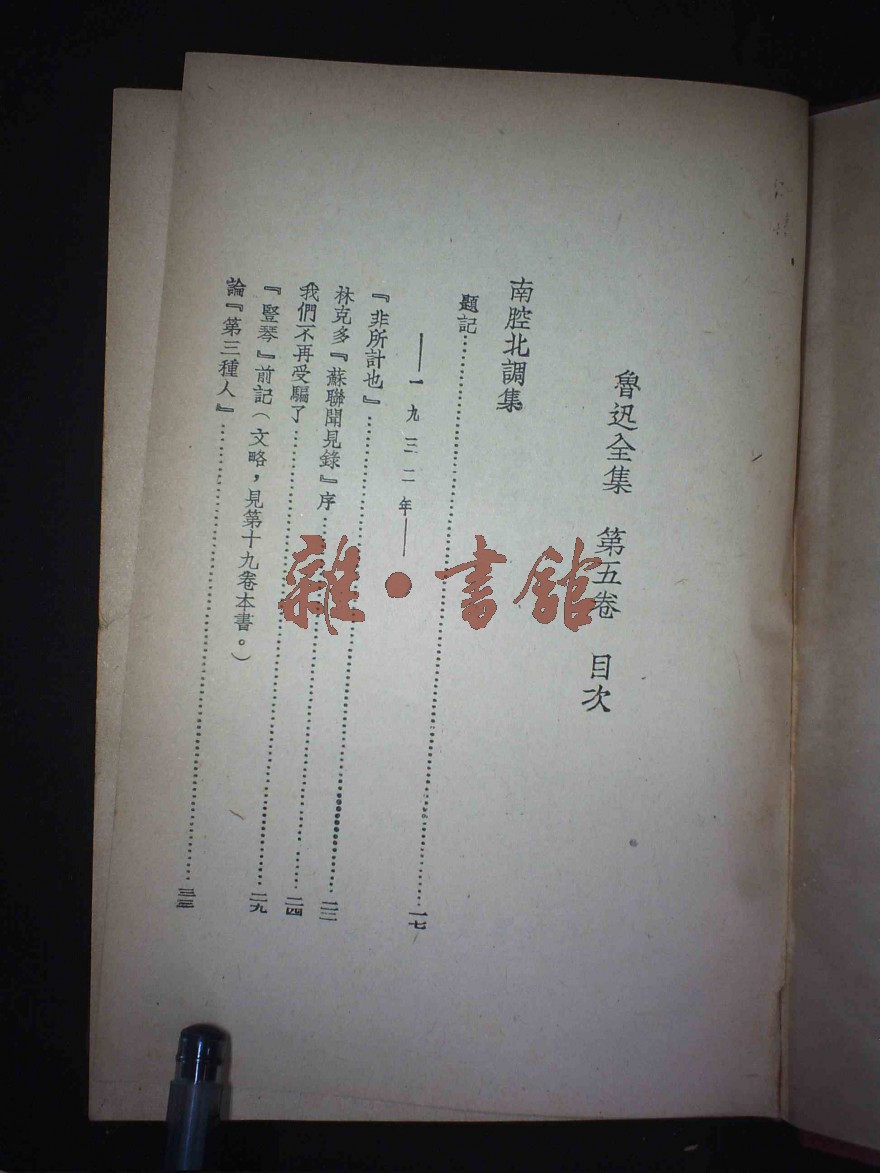 魯迅全集 第五卷 目次
南腔北調集
題記……………………一七
——一九三二年——
『非所計也』……………………二二
林克多『蘇聯聞見錄』序……………………二四
我們不再受騙了……………………二九
『豎琴』前記（文略，見第十九卷本書。）
論『第三種人』……………………三三
雜·書館